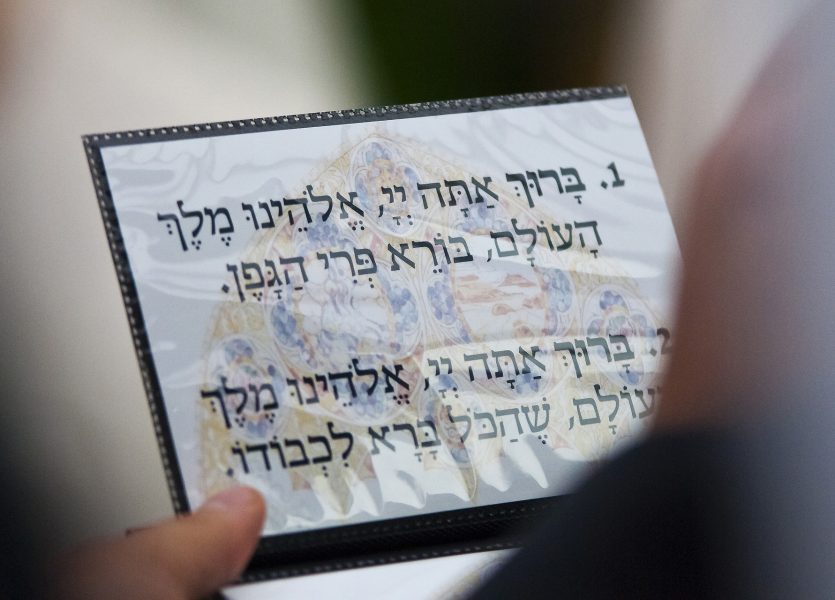 1. בָּרוּךְ אַתָּה יְיָ, אֱלֹהֵינוּ מֶלֶךְ
הָעוֹלָם, בּוֹרֵא פְּרִי הַגָּפֶן.
2. בָּרוּךְ אַתָּה יְיָ, אֱלֹהֵינוּ מֶלֶךְ
עוֹלָם, שֶׁהַכֹּל בָּרָא לִכְבוֹדוֹ.